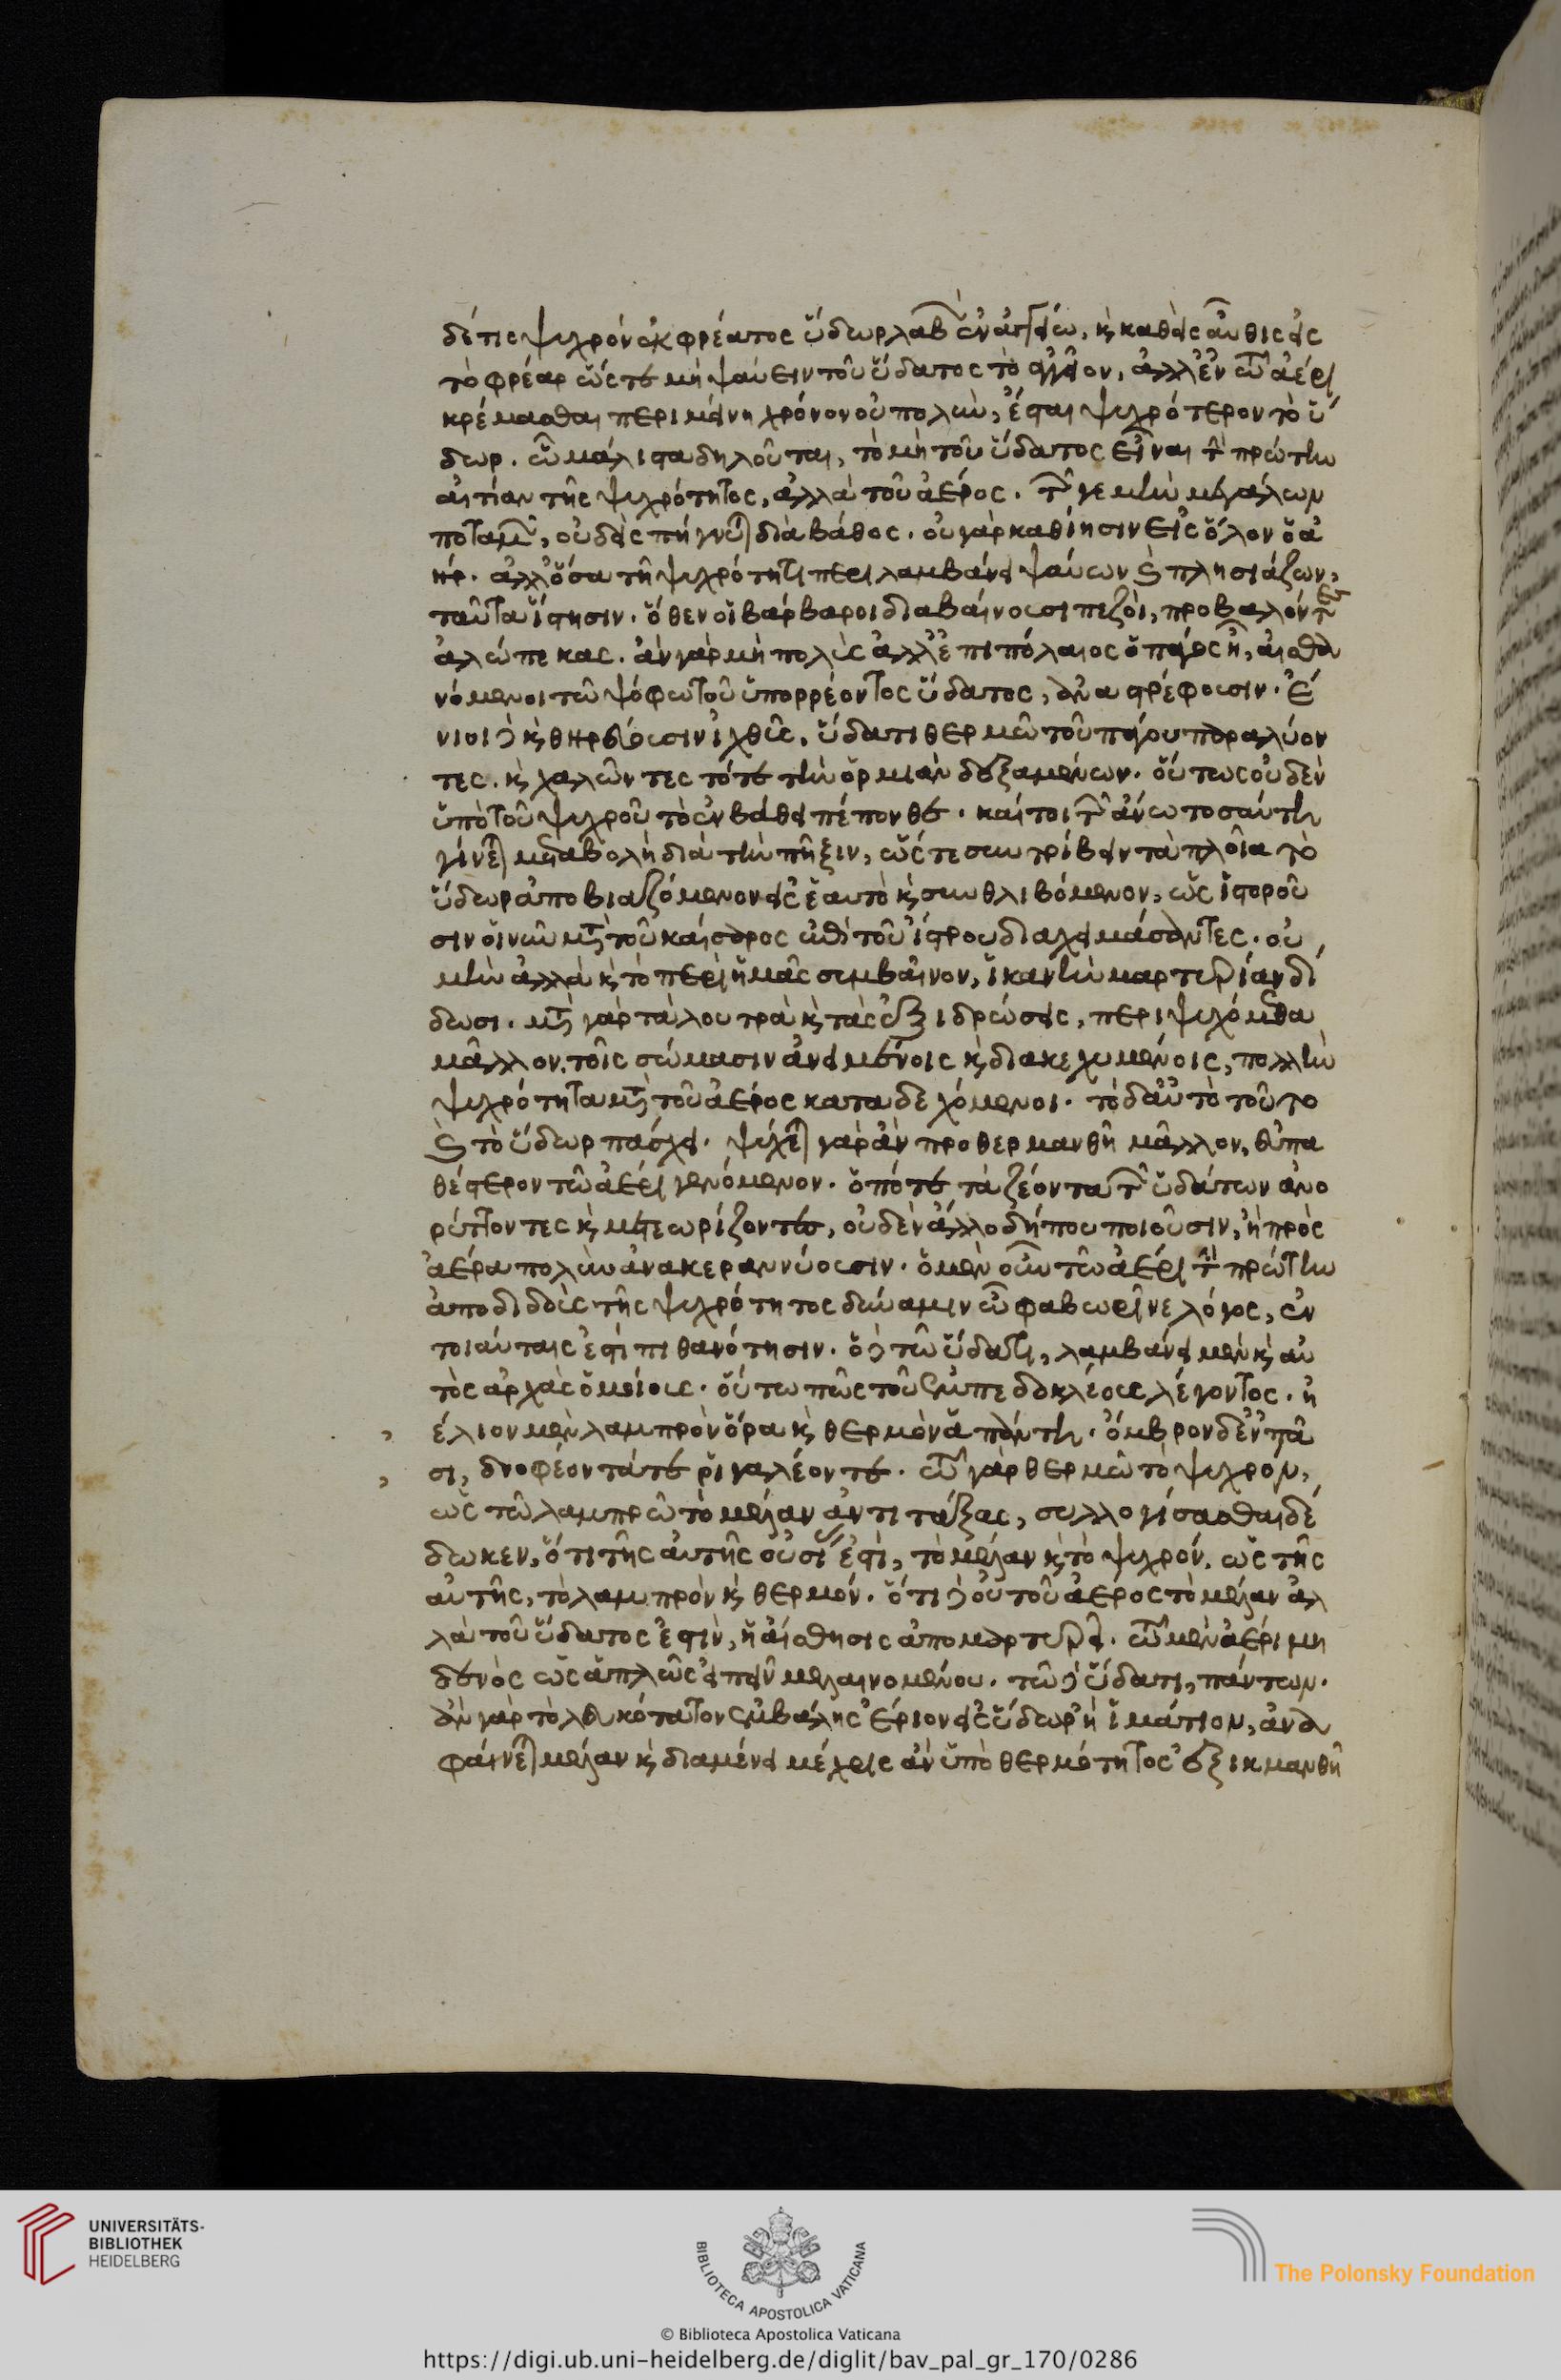 δέ τις ψυχρὸν ἐκ φρέατος ὕδωρ λαβὼν ἐν ἀγγείω, καὶ καθεὶς αὖθις εἰς
τὸ φρέαρ ὥστε μὴ ψαύειν τοῦ ὕδατος τὸ ἀγγεῖον, ἀλλ' ἐν τῶ ἀέρι
κρέμασθαι περιμείνη χρόνον οὐ πολὺν, ἔσται ψυχρότερον τὸ ὕ
δωρ. ὧ μάλιστα δηλοῦται, τὸ μὴ τοῦ ὕδατος εἶναι τὴν πρώτην
αἰτίαν τῆς ψυχρότητος, ἀλλὰ τοῦ ἀέρος. τῶν γε μὴν μεγάλων
ποταμῶν, οὐδεὶς πήγνυται διὰ βάθος. οὐ γὰρ καθίησιν εἰς ὅλον ὁ ἀ
ήρ. ἀλλ' ὅσα τῆ ψυχρότητι περιλαμβάνει ψαύων καὶ πλησιάζων,
ταῦτα ἵστησιν. ὅθεν οἱ βάρβαροι διαβαίνουσι πεζοὶ, προβαλόντες
ἀλώπεκας. ἂν γὰρ μὴ πολὺς ἀλλ' ἐπιπόλαιος ὁ πάγος ἦ, αἰσθα
νόμενοι τῶ ψόφω τοῦ ὑπορρέοντος ὕδατος, ἀναστρέφουσιν. ἔ
νιοι δὲ καὶ θηρεύουσιν ἰχθῦς, ὕδατι θερμῶ τοῦ πάγου παραλύον
τες. καὶ χαλῶντες τότε τὴν ὁρμιὰν δεξαμένων. οὕτως οὐδὲν
ὑπὸ τοῦ ψυχροῦ τὸ ἐν βάθει πέπονθε. καίτοι τῶν ἄνω τοσαύτη
γίνεται μεταβολὴ διὰ τὴν πῆξιν, ὥστε συντρίβειν τὰ πλοῖα τὸ
ὕδωρ ἀποβιαζόμενον εἰς ἑαυτὸ καὶ συνθλιβόμενον, ὡς ἱστοροῦ
σιν οἱ νῦν μετὰ τοῦ καίσαρος ἐπὶ τοῦ ἴστρου διαχειμάσαντες. οὐ
μὴν ἀλλὰ καὶ τὸ περὶ ἡμᾶς συμβαῖνον, ἱκανὴν μαρτυρίαν δί
δωσι. μετὰ γὰρ τὰ λουτρὰ καὶ τὰς ἐξιδρώσεις, περιψυχόμεθα
μᾶλλον. τοῖς σώμασιν ἀνειμένοις καὶ διακεχυμένοις, πολλὴν
ψυχρότητα μετὰ τοῦ ἀέρος καταδεχόμενοι. τὸ δ' αὐτὸ τοῦτο
καὶ τὸ ὕδωρ πάσχει. ψύχεται γὰρ ἂν προθερμανθῆ μᾶλλον, εὐπα
θέστερον τῶ ἀέρι γενόμενον. ὁπότε τὰ ζέοντα τῶν ὑδάτων ἀνα
ρύττοντες καὶ μετεωρίζοντες, οὐδὲν ἄλλο δήπου ποιοῦσιν, ἢ πρὸς
ἀέρα πολὺν ἀνακεραννύουσιν. ὁ μὲν οὖν τῶ ἀέρι τὴν πρώτην
ἀποδιδοὺς τῆς ψυχρότητος δύναμιν ὦ φαβωρῖνε λόγος, ἐν
τοιαύταις ἐστὶ πιθανότησιν. ὁ δὲ τῶ ὕδατι, λαμβάνει μὲν καὶ αὐ
τὸς ἀρχὰς ὁμοίους. οὕτω πῶς τοῦ ἐμπεδοκλέους λέγοντος. ἠ
έλιον μὲν λαμπρὸν ὅρα καὶ θερμὸν ἁπάντη. ὄμβρον δ' ἐν πᾶ
σι, δνοφέοντά τε ῥιγαλέον τε. τῶ γὰρ θερμῶ τὸ ψυχρον,
ὡς τῶ λαμπρῶ τὸ μέλαν ἀντιτάξας, συλλογίσασθαι δέ
δωκεν, ὅτι τῆς αὐτῆς οὐσίας ἐστὶ, τὸ μέλαν καὶ τὸ ψυχρόν. ὡς τῆς
αὐτῆς, τὸ λαμπρὸν καὶ θερμόν. ὅτι δὲ οὐ τοῦ ἀέρος τὸ μέλαν ἀλ
λὰ τοῦ ὕδατος ἐστὶν, ἡ αἴσθησις ἀπομαρτυρεῖ. τῶ μὲν ἀέρι μη
δενὸς ὡς ἁπλῶς εἰπεῖν μελαινομένου. τῶ δὲ ὕδατι, πάντων.
ἂν γὰρ τὸ λευκότατον ἐμβάλης ἔριον εἰς ὕδωρ ἢ ἱμάτιον, ἀνα
φαίνεται μέλαν καὶ διαμένει μέχρις ἂν ὑπὸ θερμότητος ἐξικμανθῆ
UNIVERSITÄTS-
BIBLIOTHEK
HEIDELBERG
BIBLIOTECA APOSTOLICA VATICANA
The Polonsky Foundation
© Biblioteca Apostolica Vaticana
https://digi.ub.uni-heidelberg.de/diglit/bav_pal_gr_170/0286